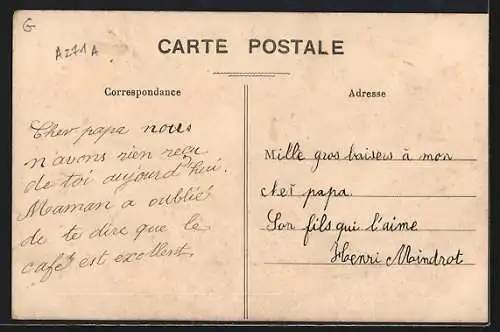 G
A271A
CARTE POSTALE
Correspondance
Cher papa nous
n'avons rien reçu
de toi aujourd'hui.
Maman a oublié
de te dire que le
café est excellent
Adresse
Mille gros baisers à mon
cher papa
Son fils qui l'aime
Henri Moindrot